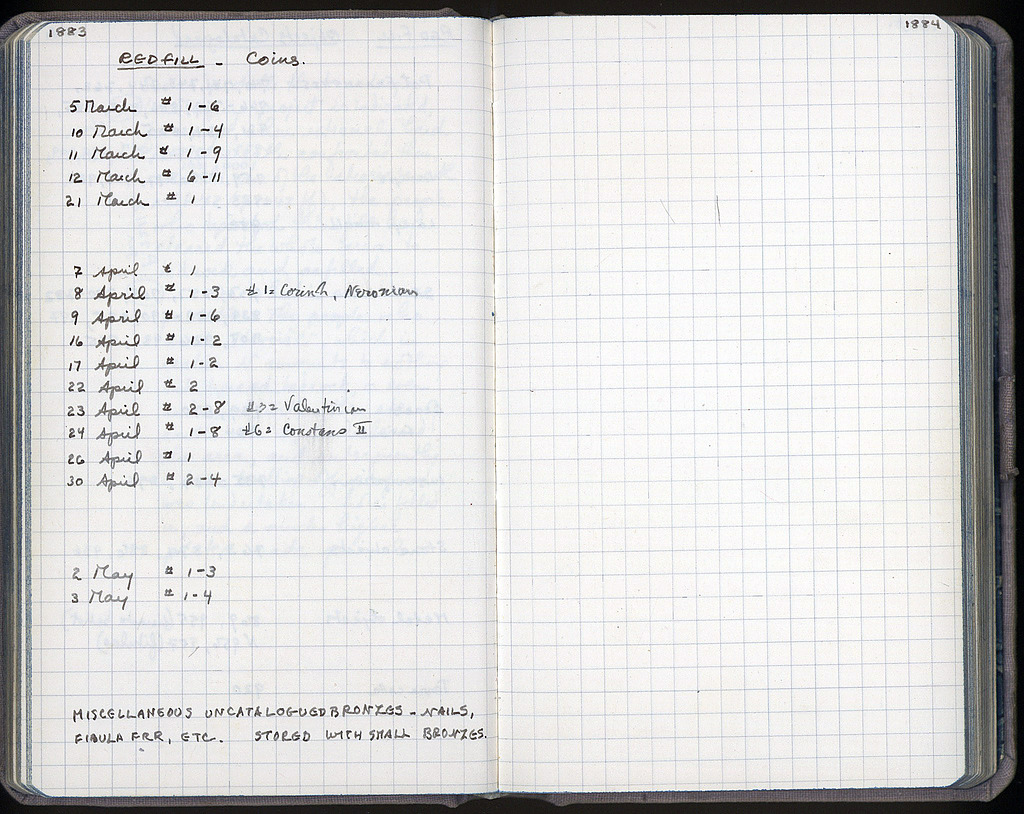 1883
1884
RED FILL - Coins.
5 March # 1-6
10 March # 1-4
11 March # 1-9
12 March # 6-11
21 March # 1
7 April # 1
8 April # 1-3 #1= Corinth, Neronian
9 April # 1-6
16 April # 1-2
17 April # 1-2
22 April # 2
23 April # 2-8 #3= Valentinian
24 April # 1-8 #6= Constans II
26 April # 1
30 April # 2-4
2 May # 1-3
3 May # 1-4
MISCELLANEOUS UNCATALOGUED BRONZES - NAILS,
FIBULA FRR, ETC. STORED WITH SMALL BRONZES.